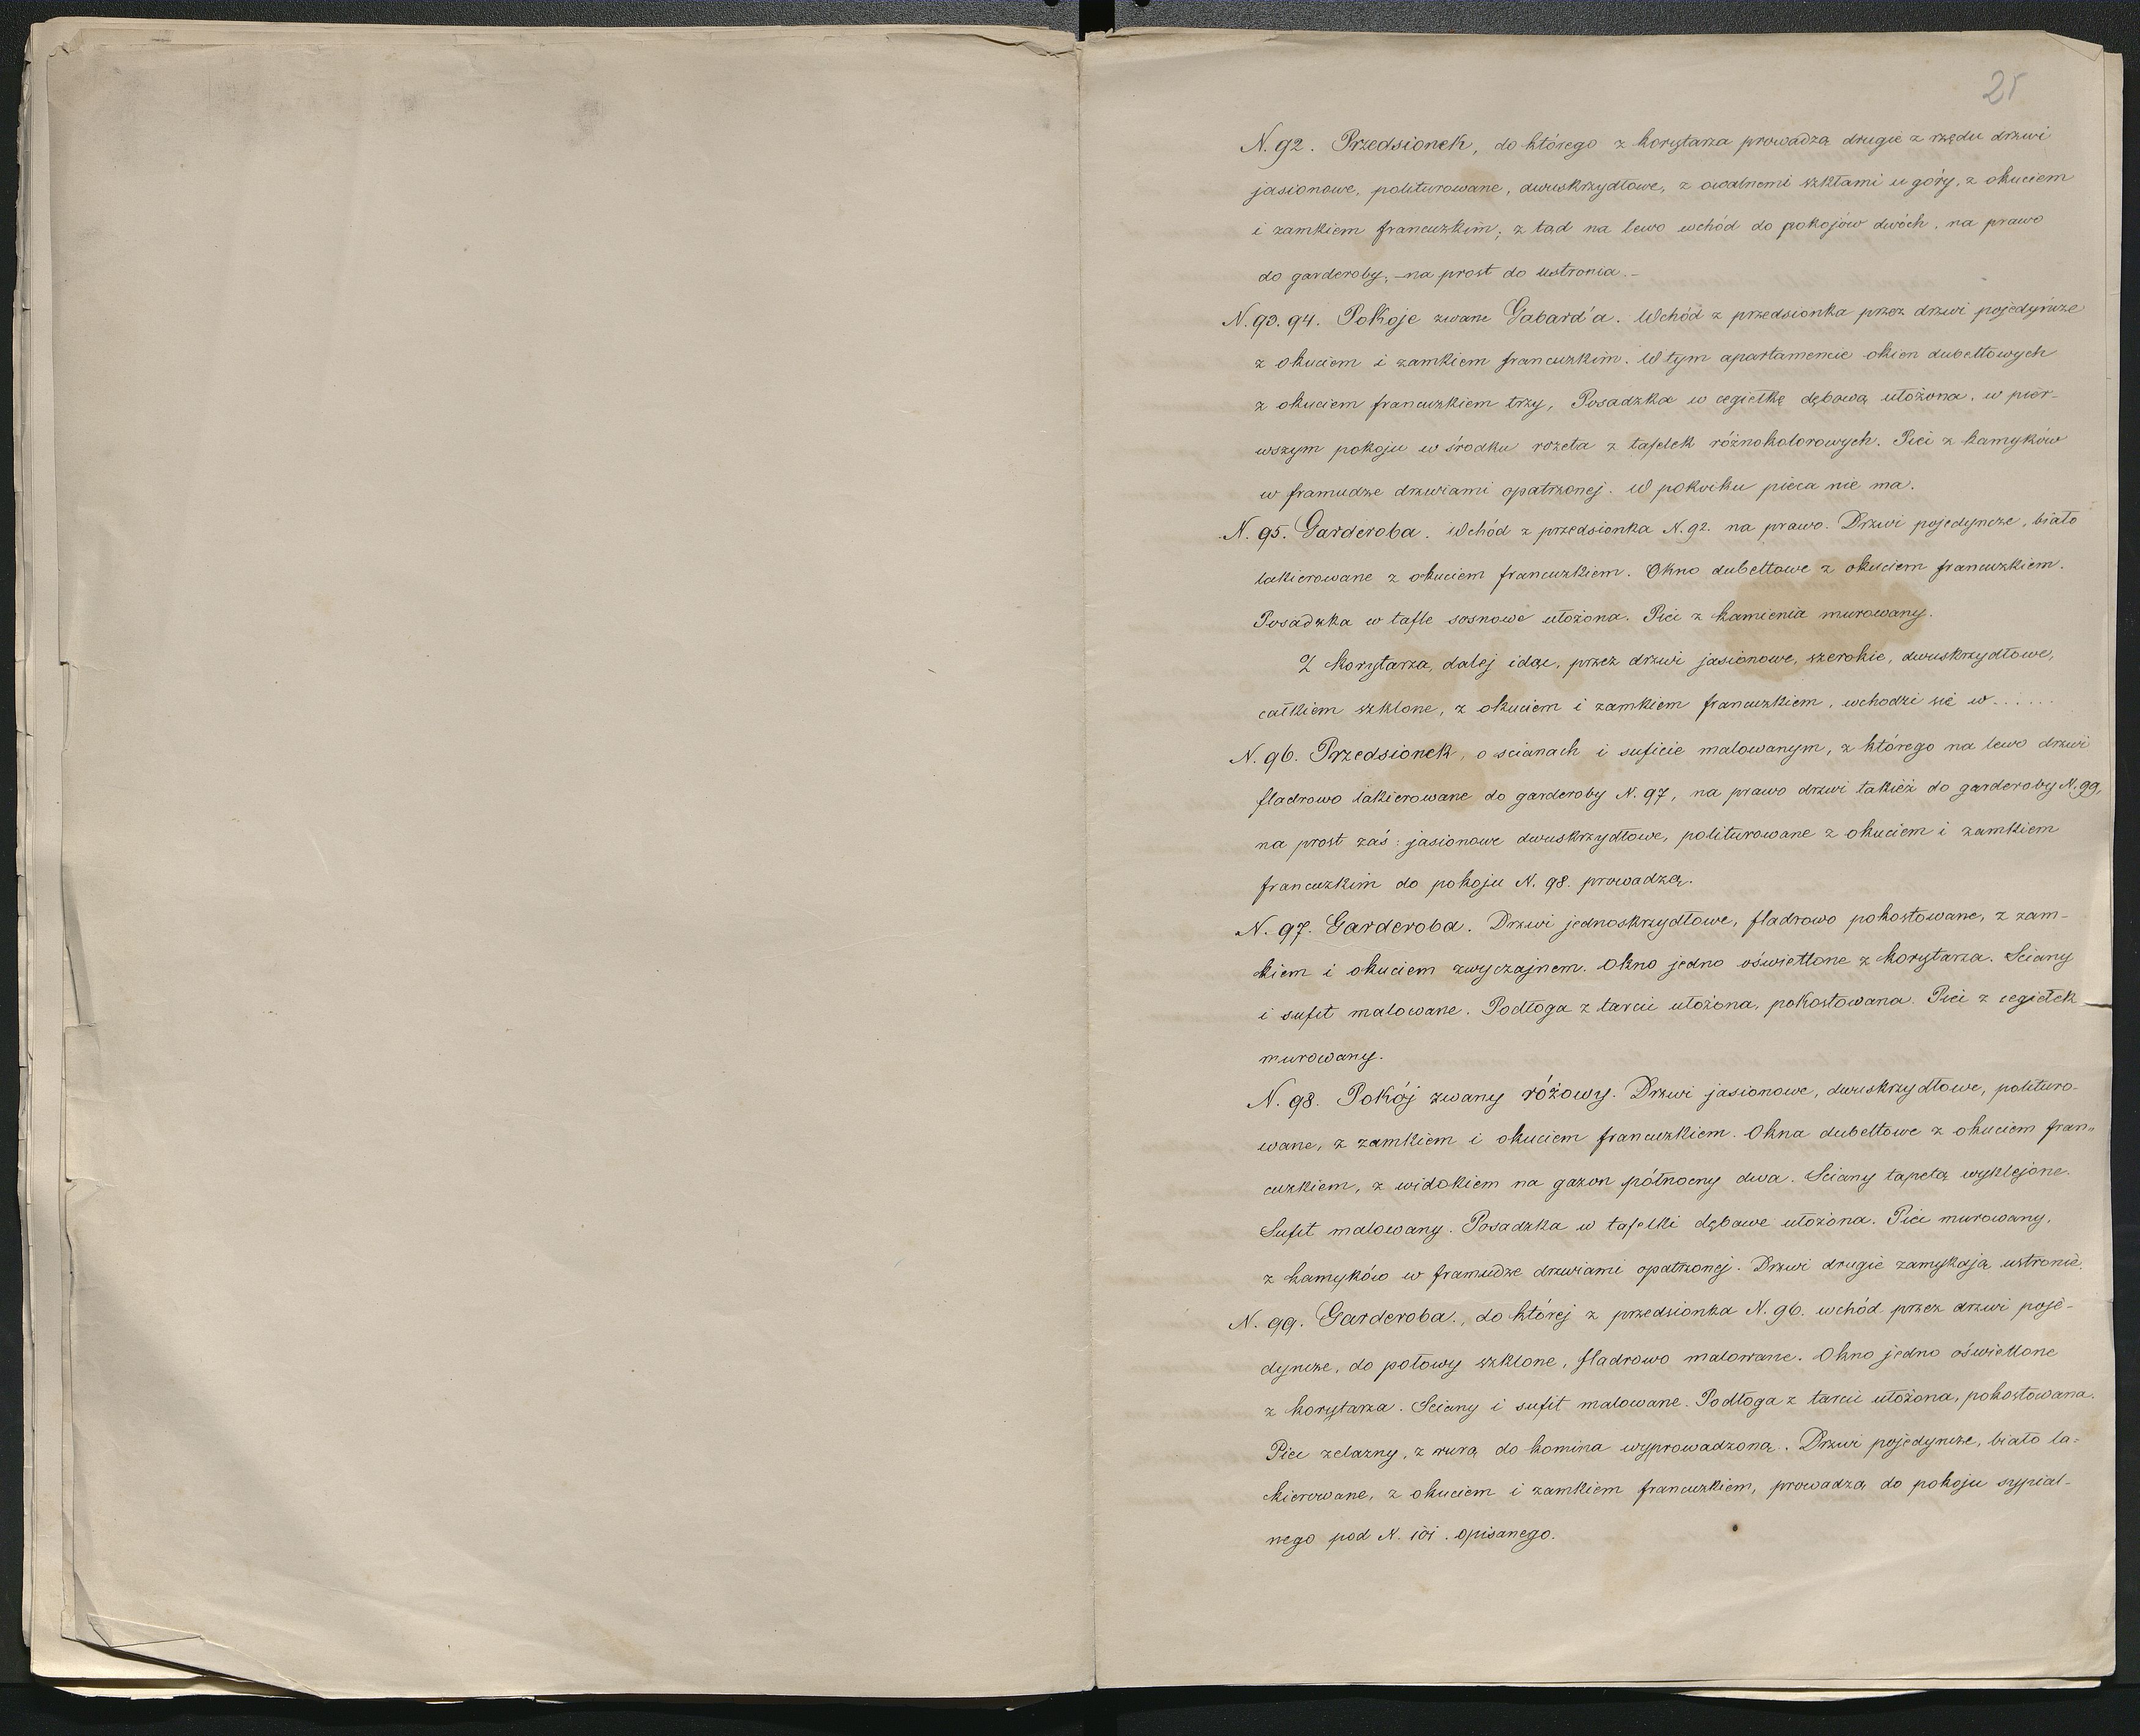 25
N. 92. Przedsionek, do którego z korytarza prowadzą drugie z rzędu drzwi
jasionowe, politurowane, dwuskrzydłowe, z owalnemi szkłami u góry, z okuciem
i zamkiem francuzkim; z tad na lewo wchód do pokojów dwóch, na prawo
do garderoby, – na prost do ustronia. –
N. 93. 94. Pokoje zwane Gabard'a. Wchód z przedsionka przez drzwi pojedyńcze
z okuciem i zamkiem francuzkim. W tym apartamencie okien dubeltowych
z okuciem francuzkiem trzy, Posadzka w cegiełkę dębową ułożona, w pier-
wszym pokoju w środku rozeta z tafelek różnokolorowych. Piec z kamyków
w framudze drzwiami opatrzonej. W pokoiku pieca nie ma.
N. 95. Garderoba. Wchód z przedsionka N. 92. na prawo. Drzwi pojedyncze, biało
lakierowane z okuciem francuzkiem. Okno dubeltowe z okuciem francuzkiem.
Posadzka w tafle sosnowe ułożona. Piec z kamienia murowany.
Z korytarza, dalej idąc, przez drzwi jasionowe, szerokie, dwuskrzydłowe,
całkiem szklone, z okuciem i zamkiem francuzkiem, wchodzi się w . . . . . .
N. 96. Przedsionek, o scianach i suficie malowanym, z którego na lewo drzwi
fladrowo lakierowane do garderoby N. 97, na prawo drzwi takież do garderoby N. 99,
na prost zaś: jasionowe dwuskrzydłowe, politurowane z okuciem i zamkiem
francuzkim do pokoju N. 98. prowadzą.
N. 97. Garderoba. Drzwi jednoskrzydłowe, fladrowo pokostowane, z zam-
kiem i okuciem zwyczajnem. Okno jedno oświetlone z korytarza. Sciany
i sufit malowane. Podłoga z tarcic ułożona, pokostowana. Piec z cegiełek
murowany.
N. 98. Pokój zwany różowy. Drzwi jasionowe, dwuskrzydłowe, politúro-
wane, z zamkiem i okuciem francuzkiem. Okna dubeltowe z okuciem fran„
cuzkiem, z widokiem na gazon północny dwa. Sciany tapetą wyklejone.
Sufit malowany. Posadzka w tafelki dębowe ułożona. Piec murowany,
z kamyków w framudze drzwiami opatrzonej. Drzwi drugie zamykają ustronie.
N. 99. Garderoba., do której z przedsionka N. 96. wchód przez drzwi poje-
dyncze, do połowy szklone, fladrowo malowane. Okno jedno oświetlone
z korytarza. Sciany i sufit malowane. Podłoga z tarcic ułożona, pokostowana.
Piec zelazny, z rurą do komina wyprowadzoną. Drzwi pojedyncze, biało la-
kierowane, z okuciem i zamkiem francuzkiem, prowadzą do pokoju sypial-
nego pod N. 101. opisanego.